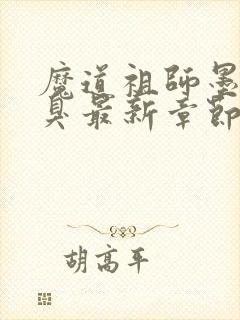 魔道祖師墨
臭最新章節
胡高平